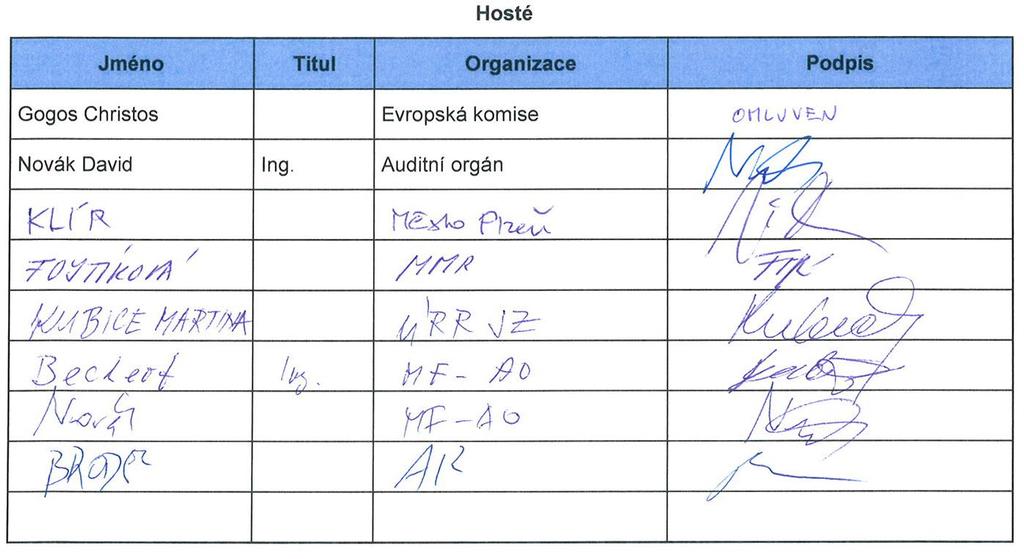 Hosté
Jméno Titul Organizace Podpis
Gogos Christos Evropská komise OMLUVEN
Novák David Ing. Auditní orgán
KLÍR Město Plzeň
FOJTÍKOVÁ MMR
KUBICE MARTINA ÚRR JZ
Beckert Ing. MF - AO
Novák MF - AO